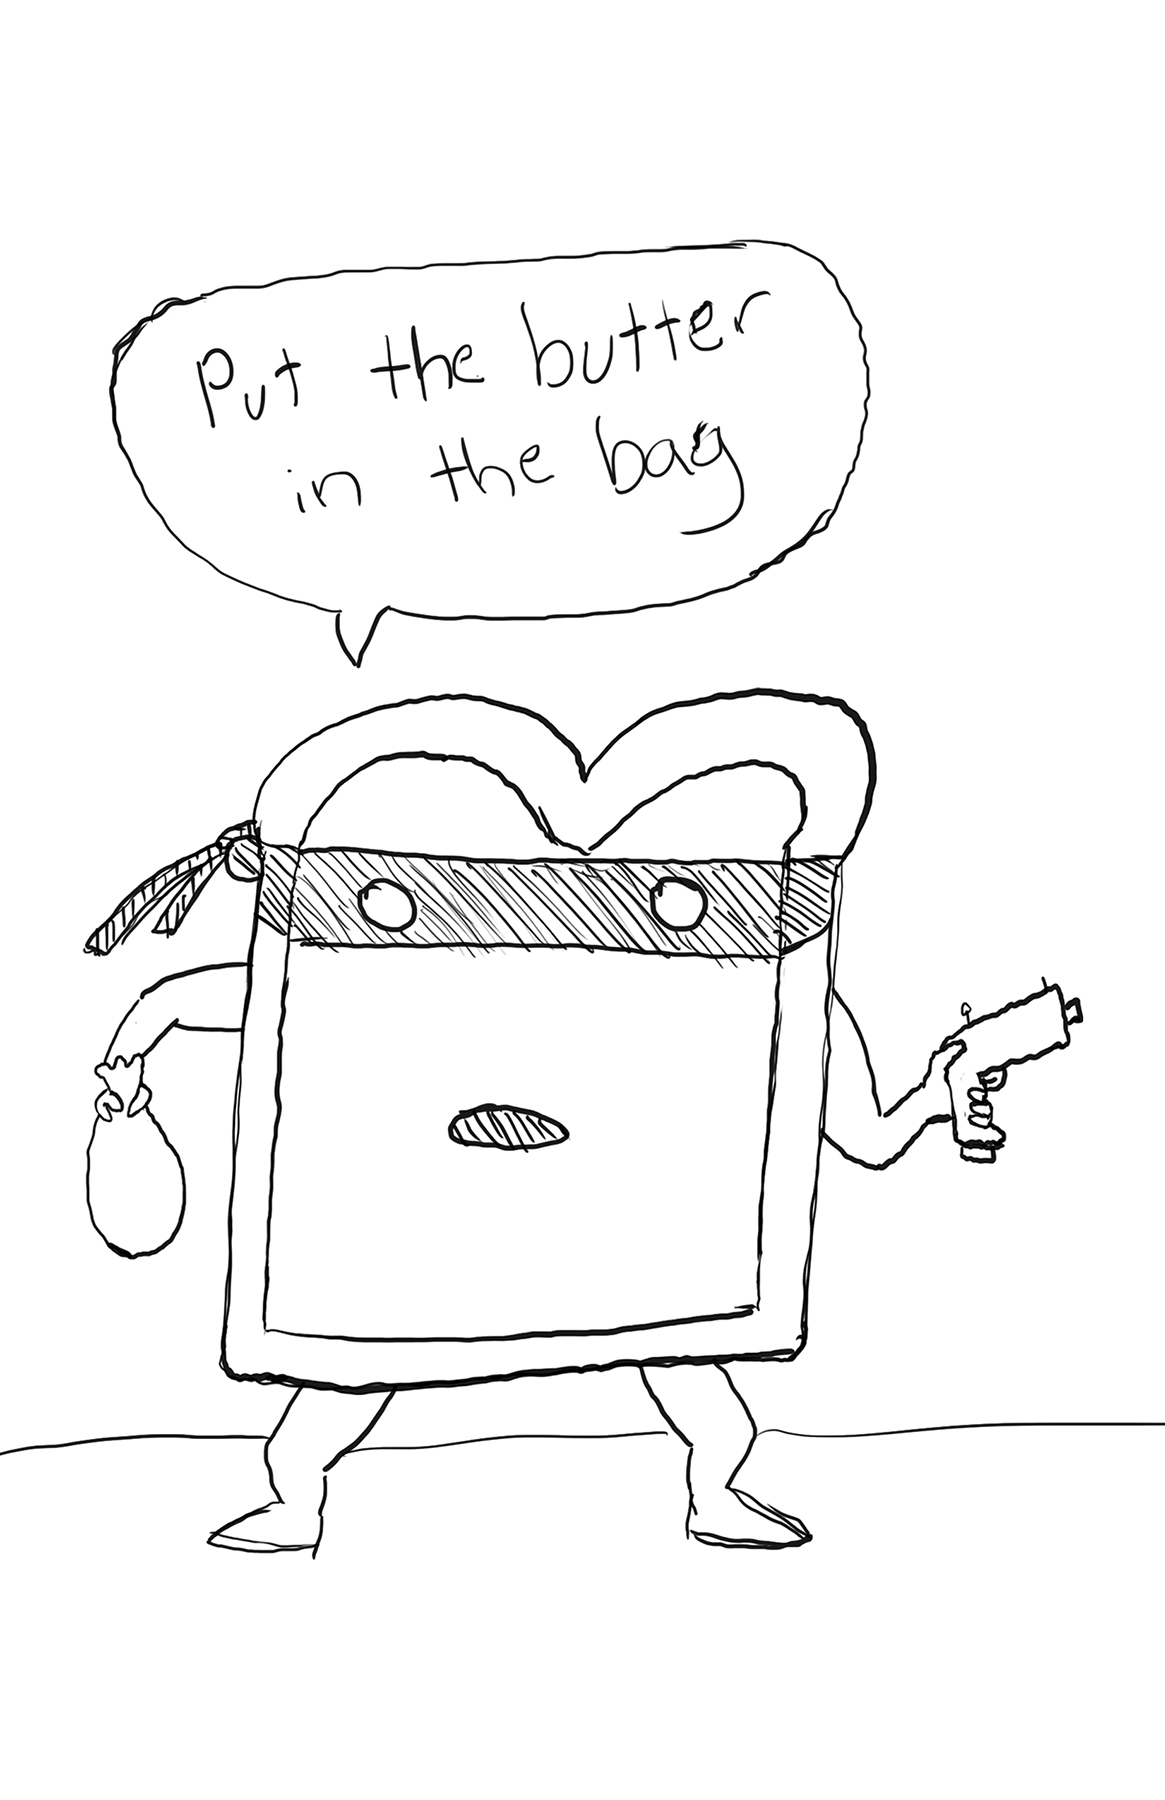 Put the butter
in the bag